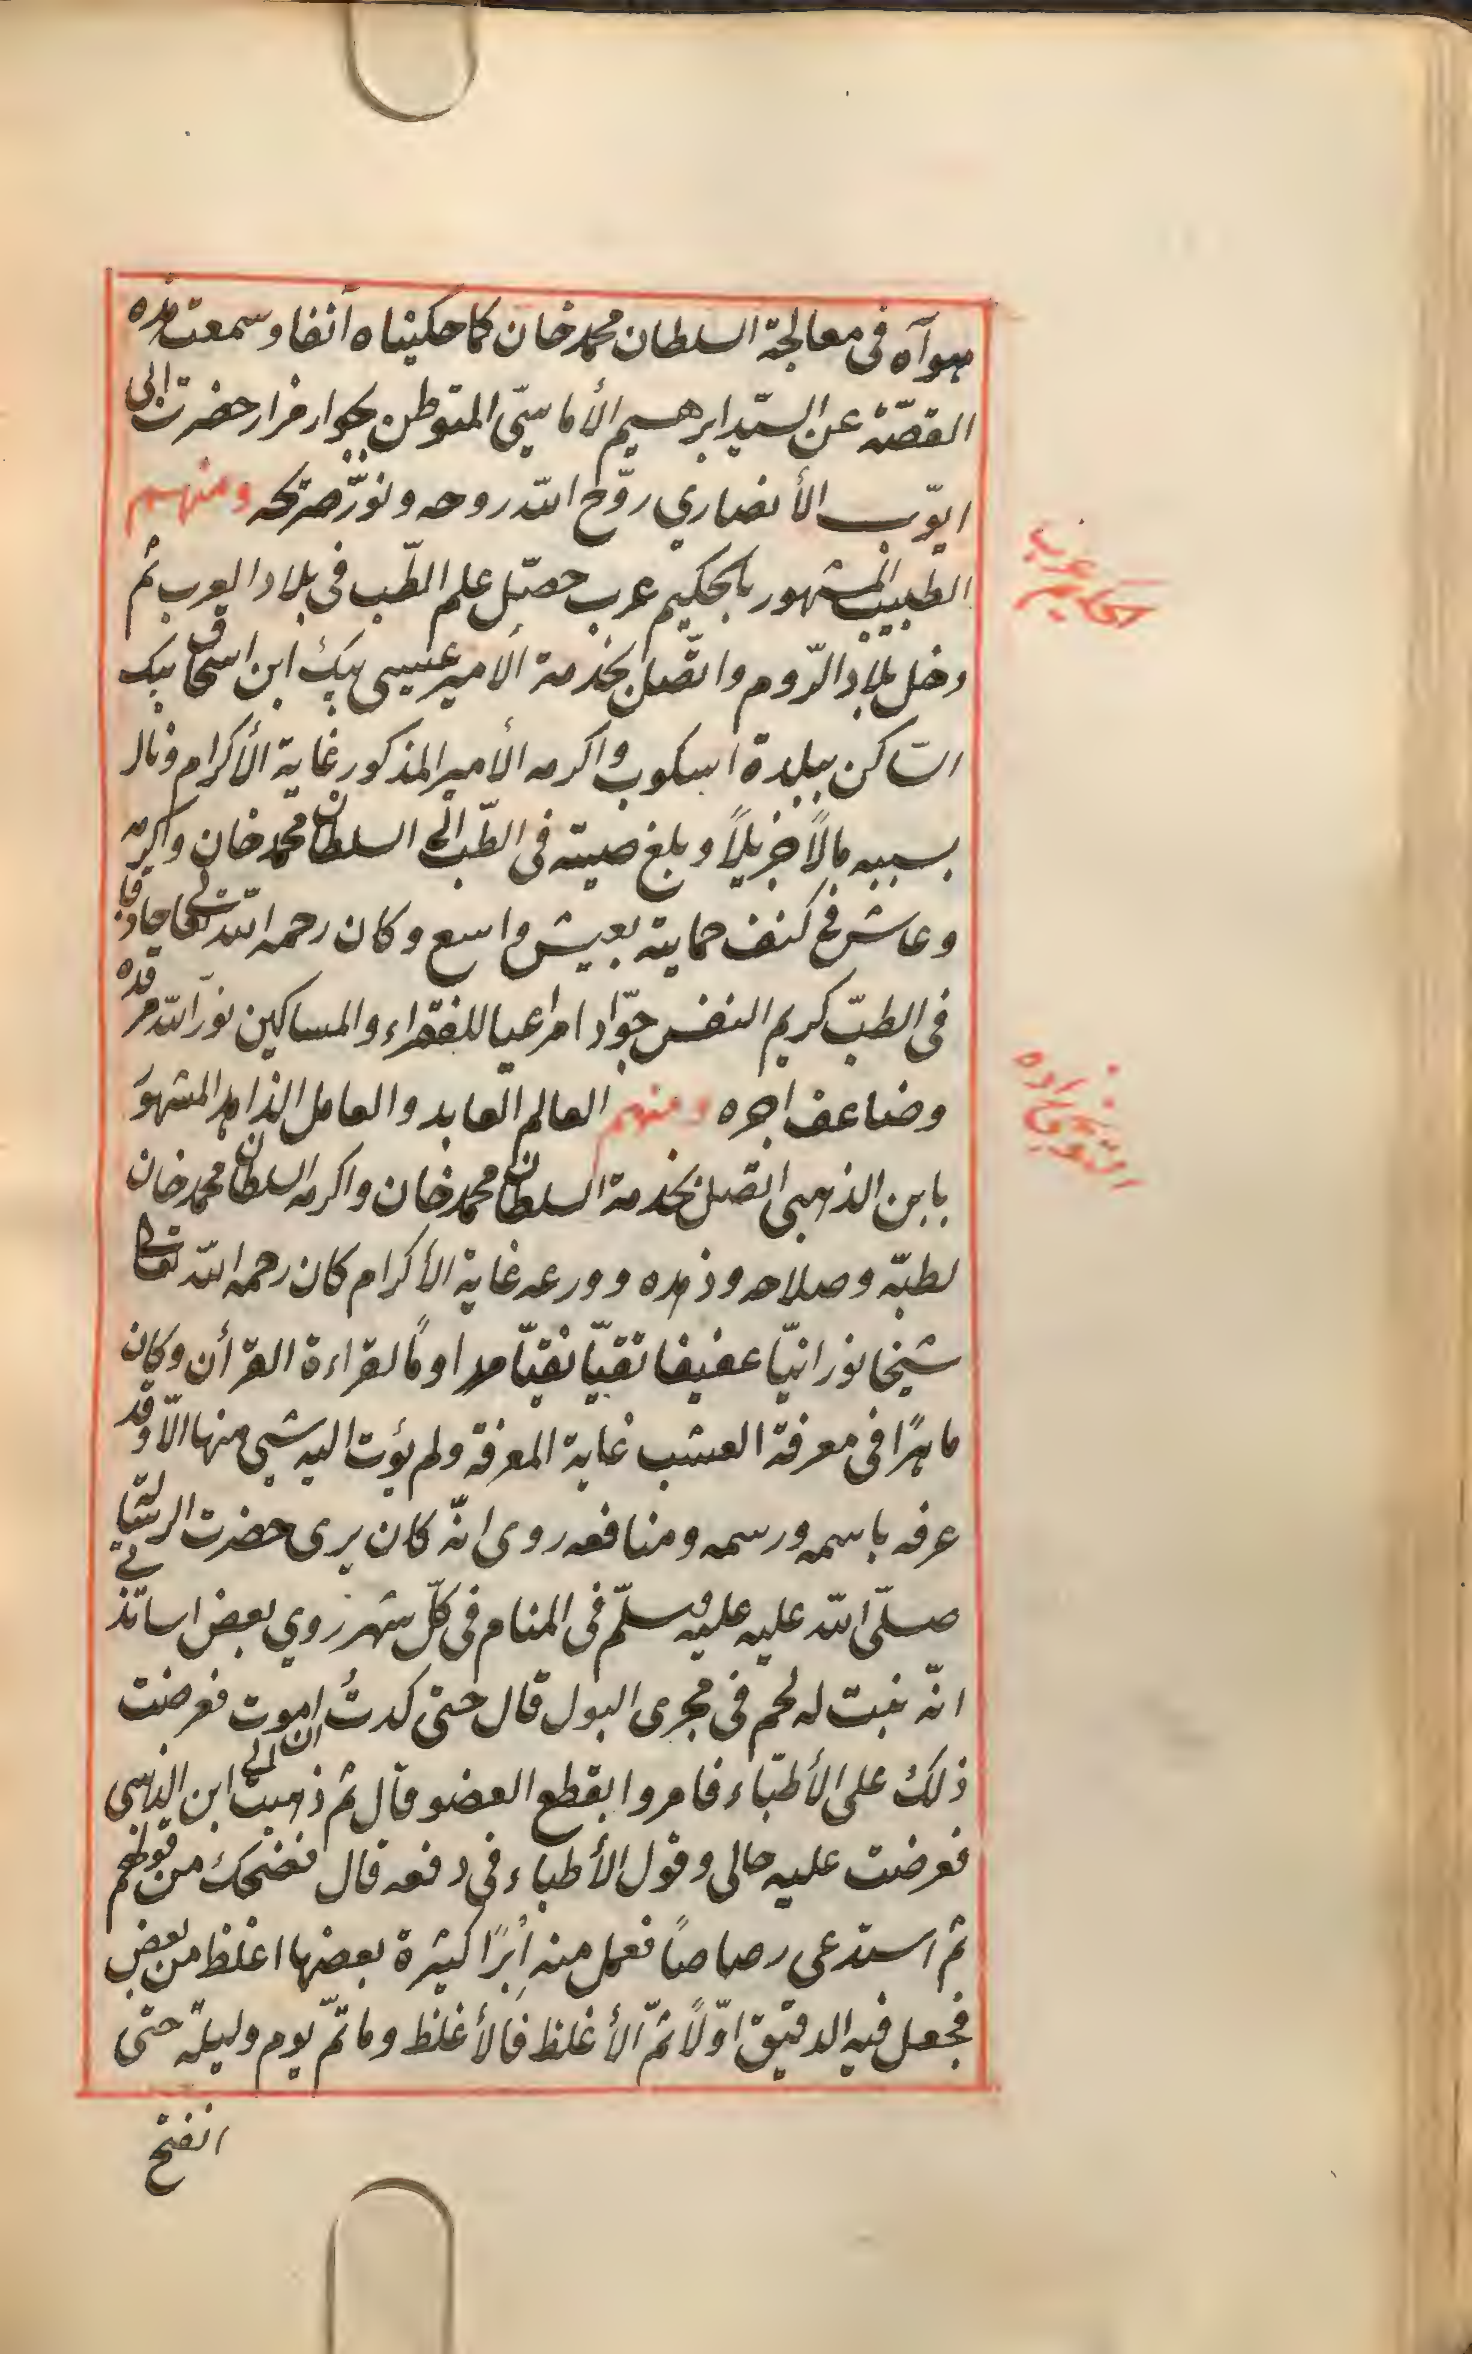 هوآه فى معالجة السلطان محمد خان كما حكيناه آنفا وسمعت هذه
القصّة عن السيّد ابرهيم الأماسيّى المتوطن بجوار مزار حضرت ابى
ايّوب الأنصاري روّح الله روحه ونوّر ضريحه ومنهم
الطبيب المشهور بالحكيم عرب حصّل علم الطّب فى بلاد العرب ثم
دخل بلاد الرّوم واتّصل بخدمة الأمير عيسى بيك ابن اسحاق بيك
الساكن ببلدة اسكوب واكرمه الأمير المذكور غاية الأكرام ونال
بسببه مالاً جزيلاً وبلغ صيته فى الطّب الى السلطان محمد خان واكرمه
وعاش فى كنف حمايته بعيش واسع وكان رحمه الله تعالى حاذقا
فى الطبّ كريم النفس جوّادا مراعيا للفقراء والمساكين نوّر الله مرقده
وضاعف اجره ومنهم العالم العابد والعامل الذاهد المشهور
بابن الذهبى اتصل بخدمة السلطان محمد خان واكرمه السلطان محمد خان
لطبّه وصلاحه وذهده وورعه غاية الأكرام كان رحمه الله تعالى
شيخا نورانيّا عفيفا تقيّا نقيّا مداومًا لقراءة القرأن وكان
ماهرًا فى معرفة العشب غاية المعرفة ولم يؤت اليه شيى منها الّا وقد
عرفه باسمه ورسمه ومنافعه روى انّه كان يرى حضرت الرسالة
صلّى الله عليه عليه وسلّم فى المنام فى كلّ شهر روي بعض اساتذتى
انّه نبت له لحم فى مجرى البول قال حتى كدتُ ان اموت فعرضت
ذلك على الأطبّاء فامروا بقطع العضو قال ثم ذهبت الى ابن الذهبى
فعرضت عليه حالى وقول الأطباء فى دفعه قال فضحك من قولهم
ثم استدعى رصاصاً فعمل منه اُبرًا كثيرة بعضها اغلظ من بعض
فجعل فيه الدقيق اوّلاً ثمّ الأغلظ فالأغلظ وماتمّ يوم وليلة حتى
انفتح
الحكيم عرب